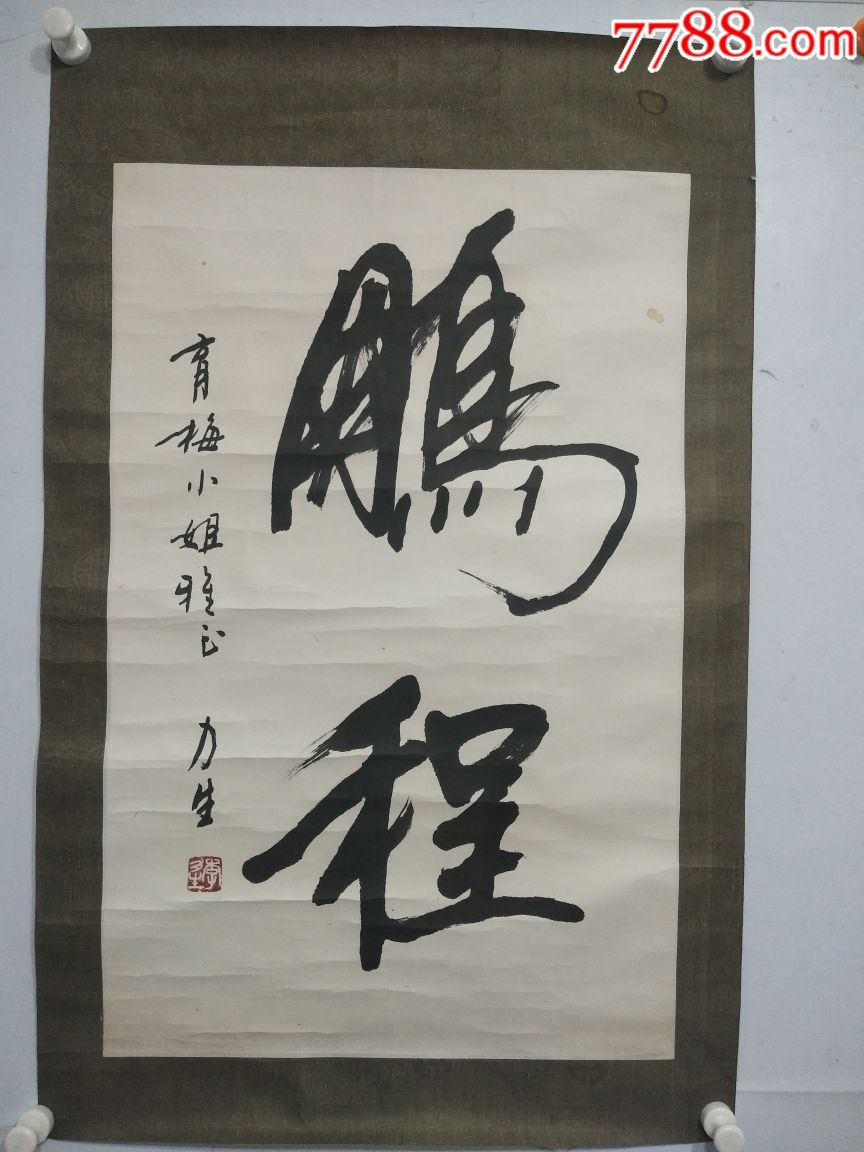 7788.com
鵬程
育梅小姐雅正
力生